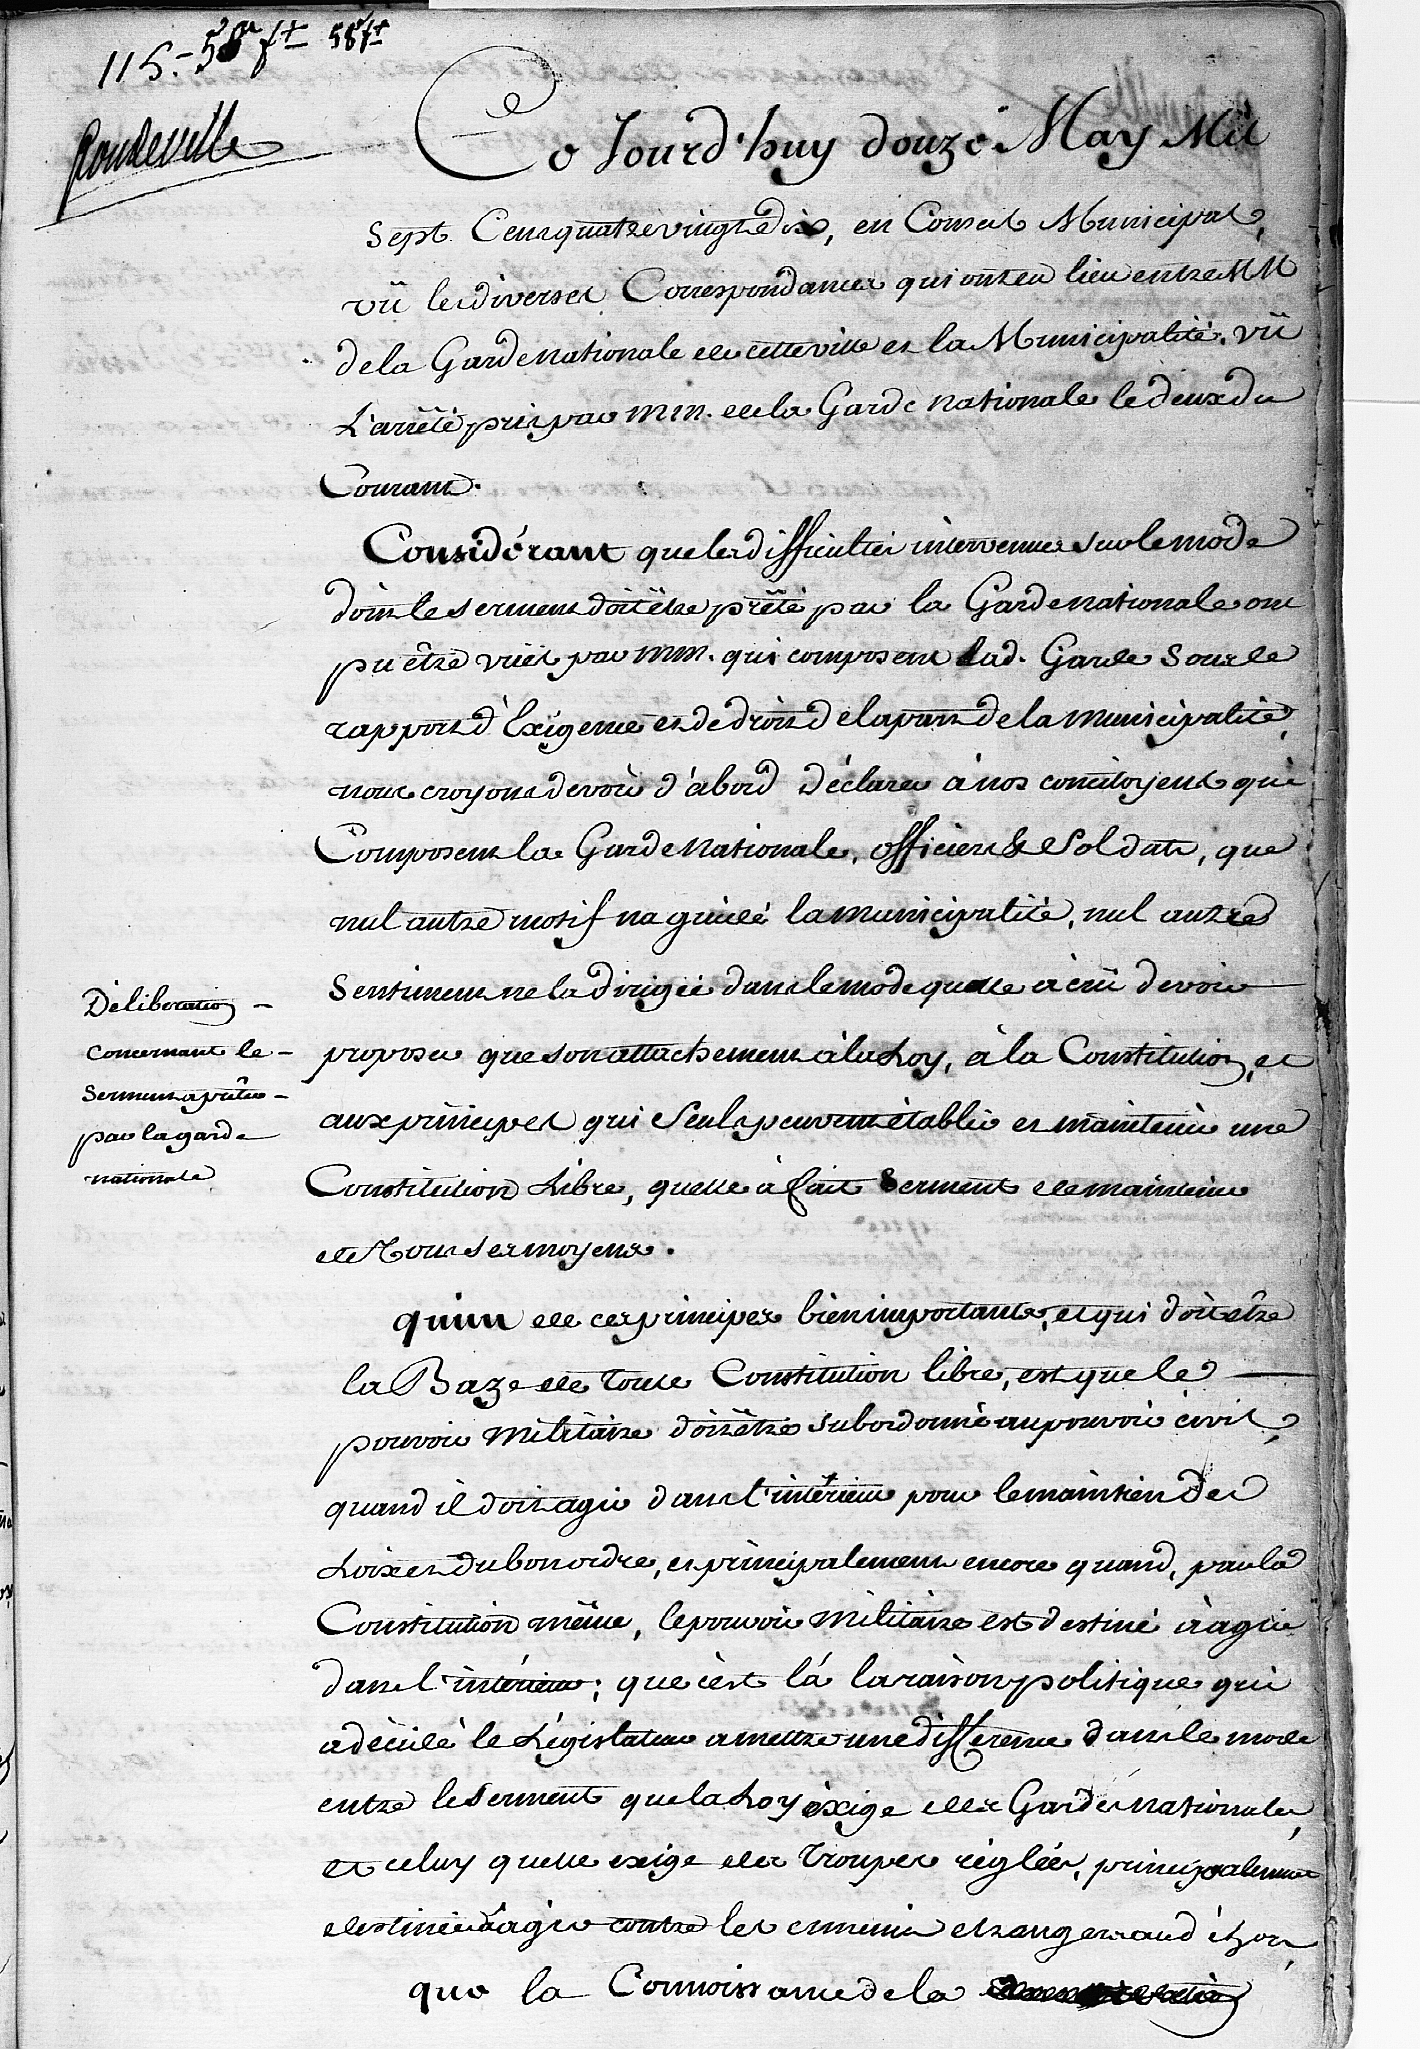 115.- 58e ft 58 ft
Rondeville
Ce Jourd'huy douze May Mil
Sept Cent quatre vingt dix, en Conseil Municipal,
vû les diverses Correspondances qui ont eu lieu entre MM
de la Garde nationale de cette ville et la Municipalité. vû
L'arrêté pris par MM. de la Garde nationale le deux du
Courant.
Considérant que les difficultés intervenues sur le mode
dont le serment doit être prêté par la Garde nationale ont
pu être vües par MM. qui composent lad. Garde sous le
rapport d'Exigence et de droit de la part de la municipalité,
nous croyons devoir d'abord déclarer à nos concitoyens qui
Composent la Garde Nationale, officiers & Soldats, que
nul autre motif na guidé la municipalité, nul autre
Sentiment ne la dirigée dans le mode quelle à crû devoir
proposer que son attachement à la Loy, à la Constitution, et
aux principes qui seuls peuvent établir et maintenir une
Constitution Libre, quelle à fait Serment de maintenir
de Tous ses moyens.
Déliberation -
concernant le -
Serment a prêter -
par la garde
nationale
qu'un de ces principes bien importants, et qui doit etre
la Baze de Toute Constitution libre, est que le
pouvoir Militaire doit être subordonné au pouvoir civil,
quand il doit agir dans l'intérieur pour le maintien des
Loix et du bon ordre, et principalement encore quand, par la
Constitution même, le pouvoir Militaire est destiné à agir
dans l'intérieur; que c'est là la raison politique qui
a décidé le Législateur a mettre une différence dans le mode
entre le Serment que la Loy éxige des Gardes nationales,
et celuy quelle exige des Troupes réglées, principalement
destinées à agir contre les ennemis etrangers au dehors,
que la Connoissance de la